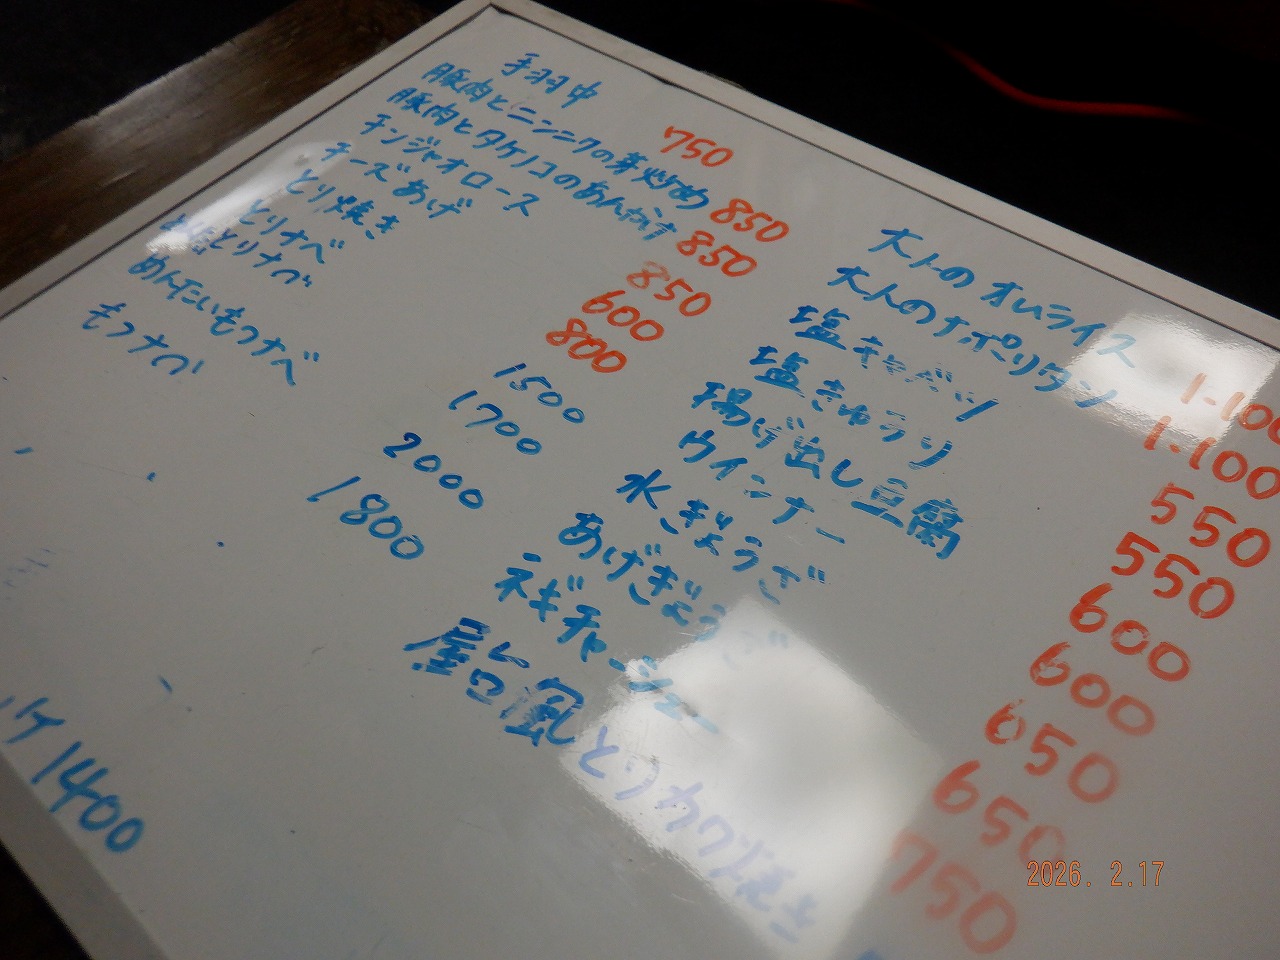 手羽中 750
豚肉とニンニクの芽炒め 850
豚肉とタケノコのあんかけ 850
チンジャオロース 850
チーズあげ 600
とり焼き 800
とりナベ 1500
とりナベ 1700
めんたいもつナベ 2000
もつナベ 1800
ケ 1400
大人のオムライス 1.100
大人のナポリタン 1.100
塩キャベツ 550
塩きゅうり 550
揚げ出し豆腐 600
ウインナー 600
水ぎょうざ 650
あげぎょうざ 650
ネギチャーシュー 750
屋台風とりカワ
2026. 2.17